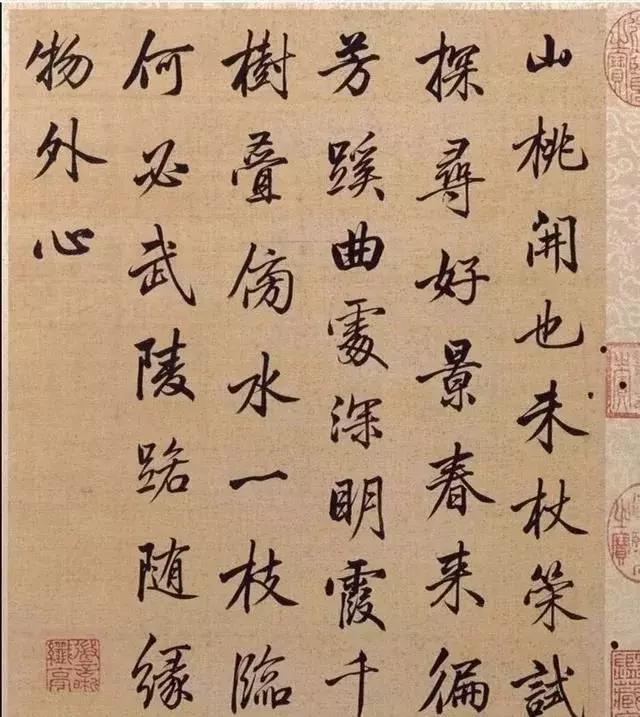 山桃開也未杖策試
探尋好景春來徧
芳蹊曲處深明霞千
樹疊傍水一枝臨
何必武陵路随緣
物外心